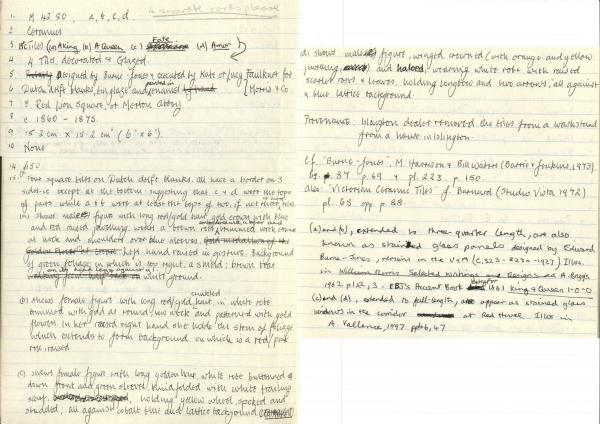 4 separate cards please
1. M 4250, a, b, c, d
2. Ceramics
3. Tiles (a) A King (b) A Queen (c) Fate (d) Amor
4. 4 Tiles, decorated & Glazed.
5. designed by Burne-Jones & executed by Kate or Lucy Faulkner for Morris & Co.
6. Dutch delft blanks, tin glaze and painted in enamel
7. 8 Red Lion Square, or Merton Abbey
8. c 1860 - 1875.
9. 15.2 cm x 15.2 cm (6" x 6")
10. None
14. £50
15. Four square tiles on Dutch delft blanks. all have a border on 3
sides ie except at the bottom suggesting that c & d were the tops
of pairs while a & b were at least the tops of two, if not three, tiles.
(a) shows male figure with long red/gold hair, gold crown with blue
and red jewelling. wears a brown robe trimmed with
at neck and shoulders over blue sleeves. left hand raised in gesture. background
of green foliage in which is, upper right, a shield; brown boar
on white ground.
(b) shows female figure with long red/gold hair, in white robe
trimmed with gold at round neck and patterned with gold
flowers. In her raised right hand she holds the stem of foliage
which extends to form background on which is a red/pink
rose
(c) shows female figure with long golden hair, white robe buttoned
down front and green sleeves, blindfolded with white trailing
scarf, holding yellow wheel, spoked and
studded, all against cobalt blue and lattice background.
(d) shows male figure, winged, crowned (with orange and yellow
jewelling) and haloed, wearing white robe with
scarlet roses & leaves. holding longbow and two arrows, all against
a blue lattice background.
Provenance: Islington dealer removed the tiles from a washstand
from a house in Islington.
Cf. "Burne-Jones", M. Harrison & Bill Waters (Barrie & Jenkins, 1973)
fig. 87 p. 69 & pl. 223 p. 150.
Also: "Victorian Ceramic Tiles" J Barnard (Studio Vista 1972)
pl. 65 opp. p. 88.
(a) and (b), extended to three-quarter length, are also
known as stained glass panels designed by Edward
Burne-Jones, remains in the V & M (C.323 - 1927) Illus.
in William Morris Selected Writings and Designs ed A. Briggs,
1962. pl 2, 3. EBJ's Account Book 1861 King & Queen 1-0-0
(c) and (d), extended to full-length, appear as stained glass
windows in the corridor at Red House. Illus in
A. Vallance, 1897 opp 46, 47